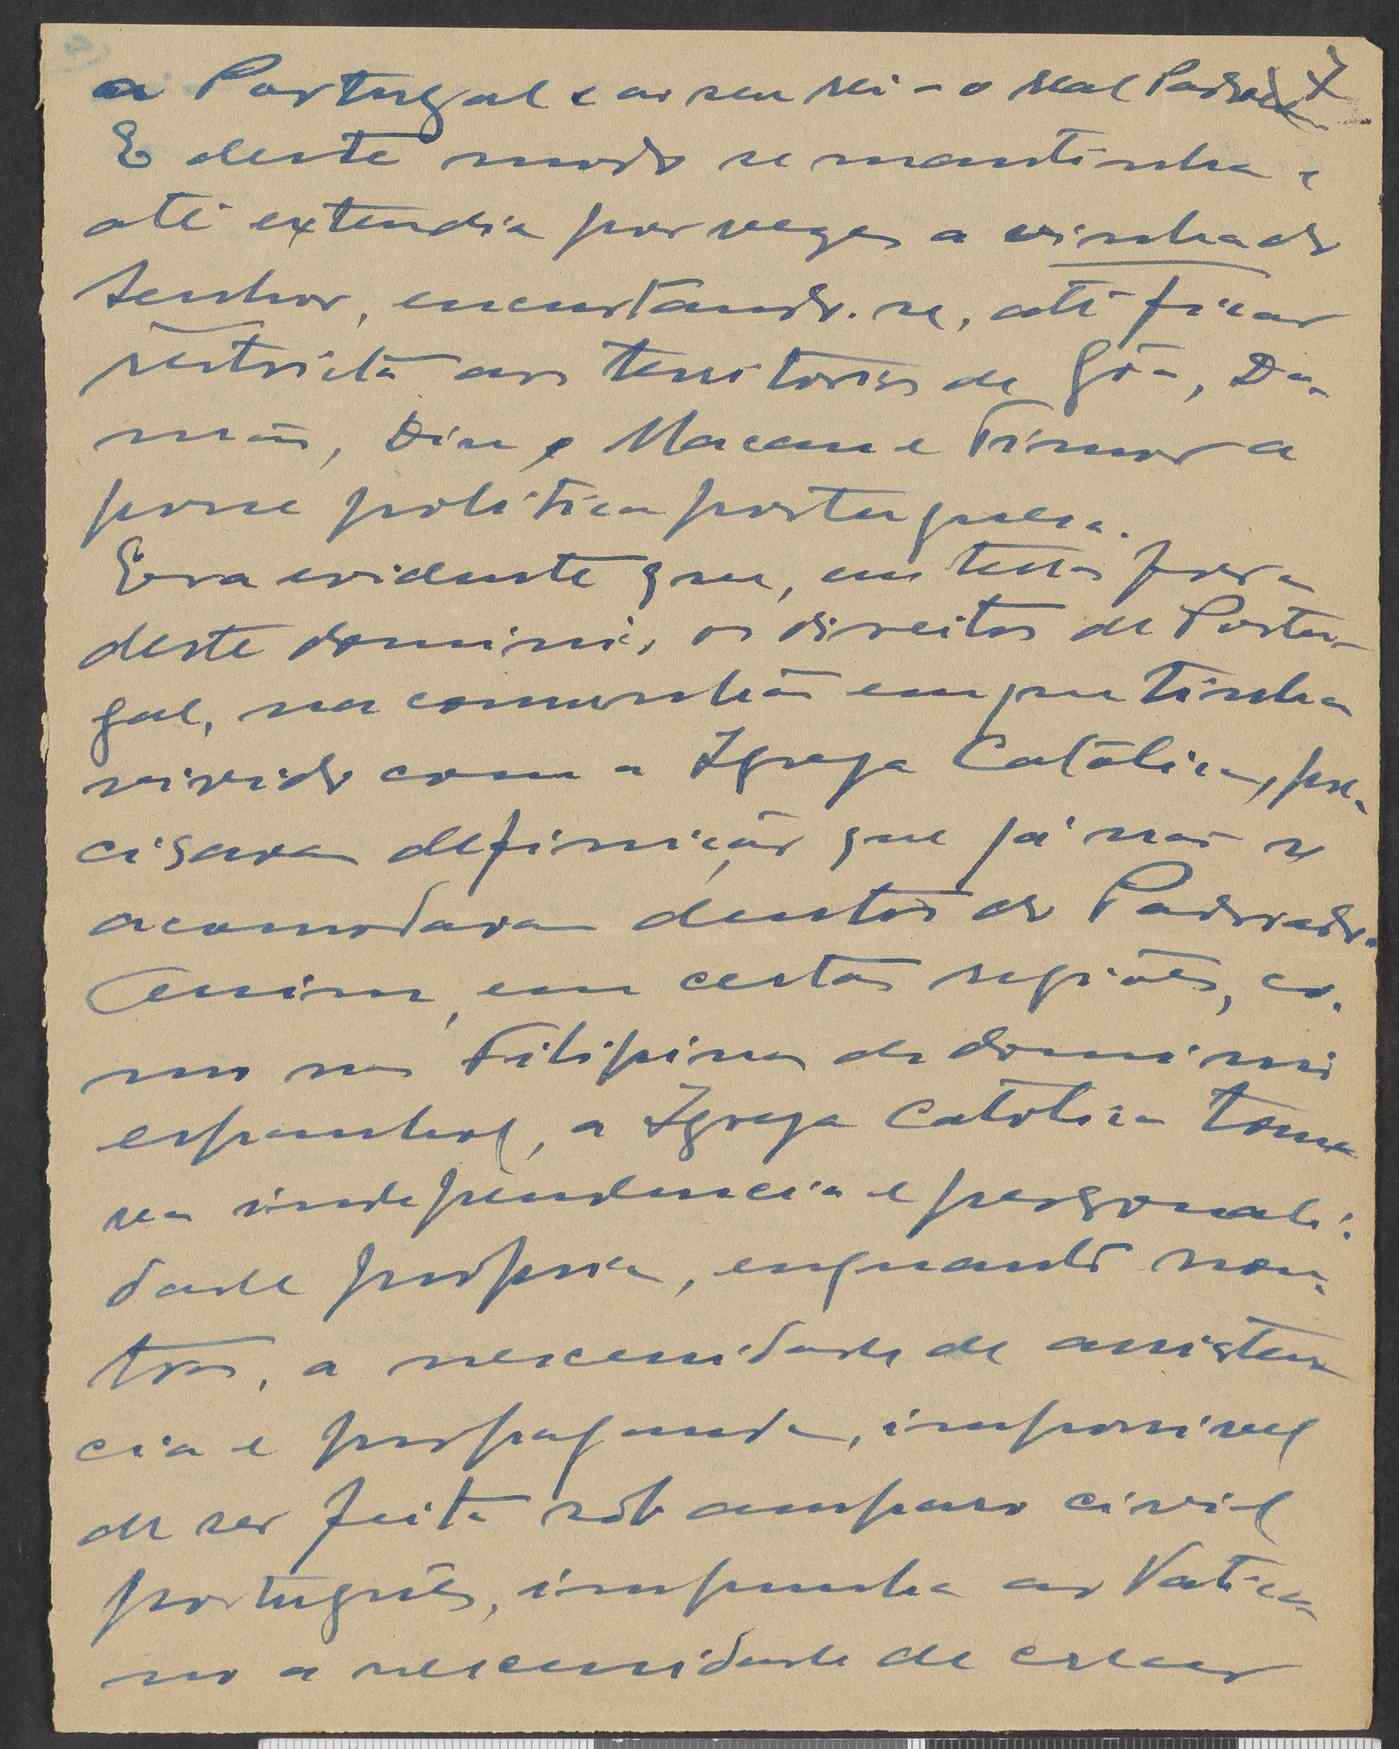 a Portugal e ao seu rei - o real Padroado 7
E deste modo se mantinha e
até extendia por vezes a vinha do
Senhor, encurtando-se, até ficar
restricta aos territorios de Gôa, Da-
mão, Diu, Macau e Timor a
posse politica portuguesa.
Era evidente que, em terras fora
deste dominio, os direitos de Portu-
gal, na comunhão em que tinha
vivido com a Igreja Católica, pre-
cisava definição que já não se
acomodava dentro do Padroado.
Assim, em certas regiões, co-
mo nas Filipinas de dominio
espanhol, a Igreja Catolica toma
va independencia e personali-
dade propria, enquanto nou-
tras, a nescessidade de assisten
cia e propaganda, impossivel
de ser feita sob amparo civil
português, impunha ao Vatica
no a nescessidade de crear